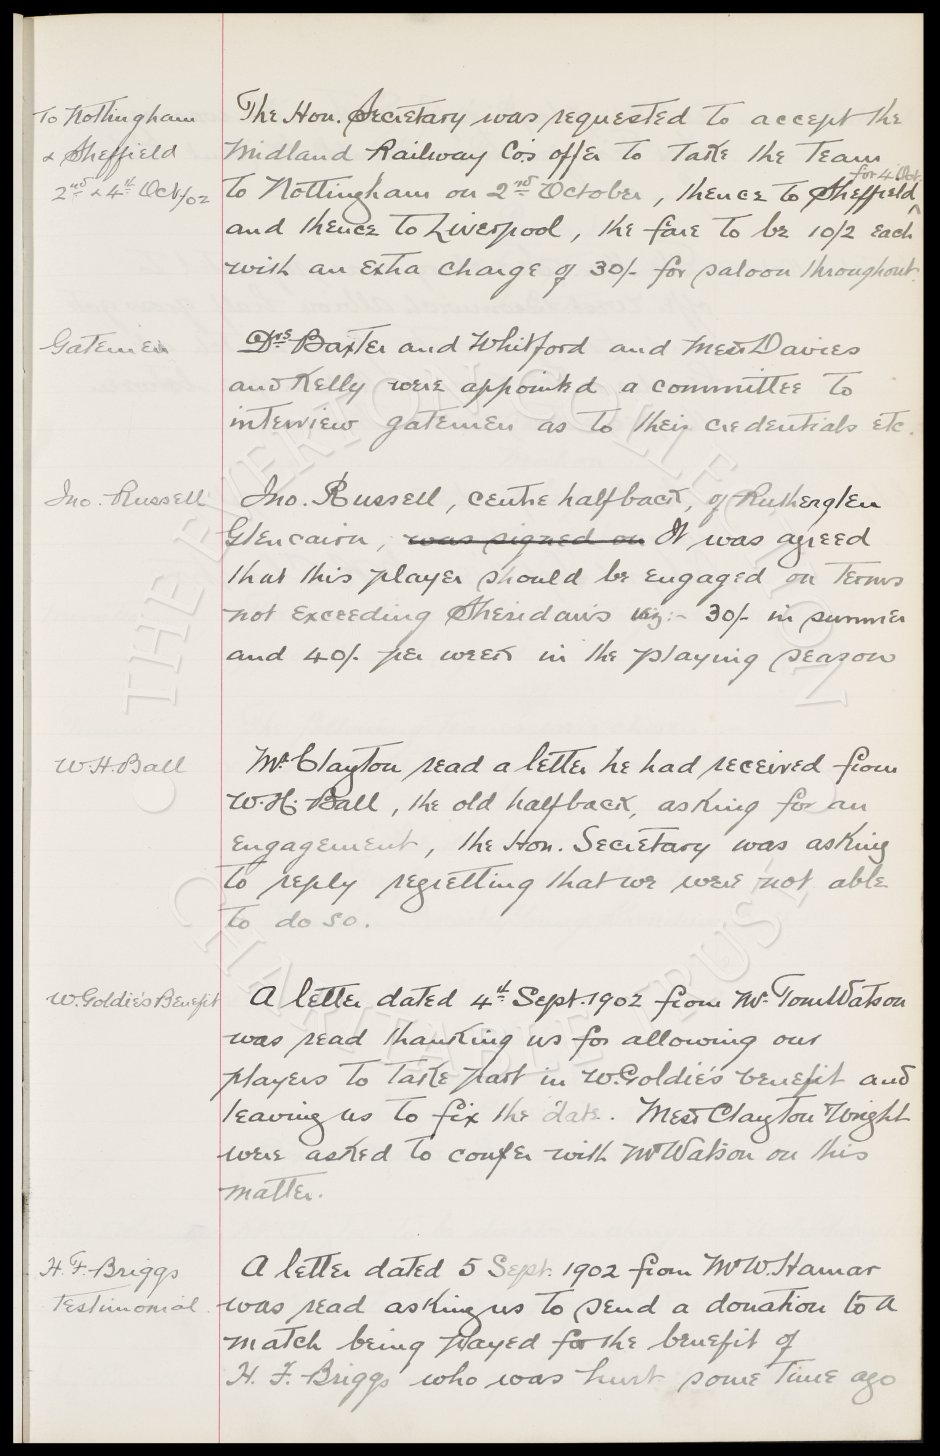 To Nottingham
& Sheffield
2nd & 4th Oct/02
The Hon. Secretary was requested to accept the
Midland Railway Co's offer to take the Team
to Nottingham on 2nd October, thence to Sheffield
for 4 Oct.
and thence to Liverpool, the fare to be 10/2 each
with an extra charge of 30/- for saloon throughout.
Gatemen
Drs Baxter and Whitford and Messrs Davies
and Kelly were appointed a committee to
interview gatemen as to their credentials etc.
Jno. Russell
Jno. Russell, centre halfback, of Rutherglen
Glencairn, was signed on It was agreed
that this player should be engaged on terms
not exceeding Sheridan's viz:- 30/- in summer
and 40/- per week in the playing season
W.H. Ball
Mr. Clayton read a letter he had received from
W.H. Ball, the old halfback, asking for an
engagement, the Hon. Secretary was asking
to reply regretting that we were not able
to do so.
W. Goldie's Benefit
A letter dated 4th Sept. 1902 from Mr. Tom Watson
was read thanking us for allowing our
players to take part in W. Goldie's benefit and
leaving us to fix the date. Messrs Clayton & Wright
were asked to confer with Mr Watson on this
matter.
H. F. Briggs
Testimonial.
A letter dated 5 Sept. 1902 from Mr W. Hamar
was read asking us to send a donation to a
match being played for the benefit of
H. F. Briggs who was hurt some time ago
THE EVERTON COLLECTION
CHARITABLE TRUST